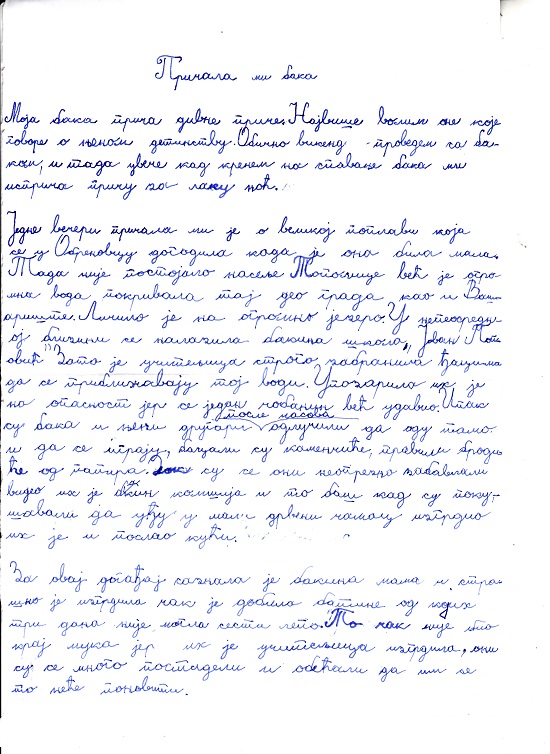 Причала ми бака
Моја бака прича дивне приче. Највише волим оне које
говоре о њеном детињству. Обично викенд проведем са ба-
ком, и тада увече кад кренем на спавање бака ми
исприча причу за лаку ноћ.
Једне вечери причала ми је о великој поплави која
се у Обреновцу догодила када је она била мала.
Тада није постојало насеље Топольице већ је огро
мна вода покривала тај део града као и Ваш
ариште. Личило је на огромно језеро. У непосредн
ој близини се налазила бакина школа „Јован Поп
овић" Зато је учитељица строго забранила ђацима
да се приближавају тој води. Упозорила их је
на опасност јер се један чобанин већ удавио. Ипак
су бака и њени другари после часова одлучили да оду тамо
и да се играју, бацали су каменчиће, правили бродић
ће од папира. Док су се они неопрезно забављали
видео их је бакин комшија и то баш кад су поку-
шавали да уђу у мали дрвени чамац изгрдио
их је и послао кући.
За овај догађај сазнала је бакина мама и стра
шно је изгрдила чак је добила батине од којих
три дана није могла сести лепо. То чак није био
крај мука јер их је учитељица изгрдила, они
су се много постидели и обећали да им се
то неће поновити.